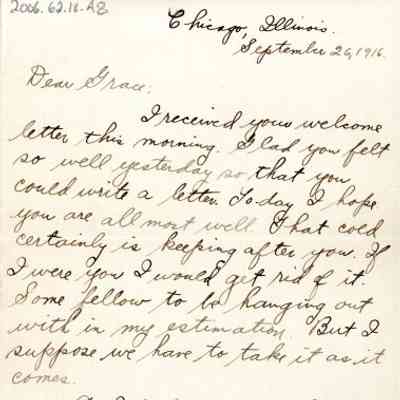 2006.62.16.A8
Chicago, Illinois.
September 26, 1916.
Dear Grace:
I received your welcome
letter this morning. Glad you felt
so well yesterday so that you
could write a letter. To-day I hope
you are all most well. That cold
certainly is keeping after you. If
I were you I would get rid of it.
Some fellow to be hanging out
with in my estimation. But I
suppose we have to take it as it
comes.